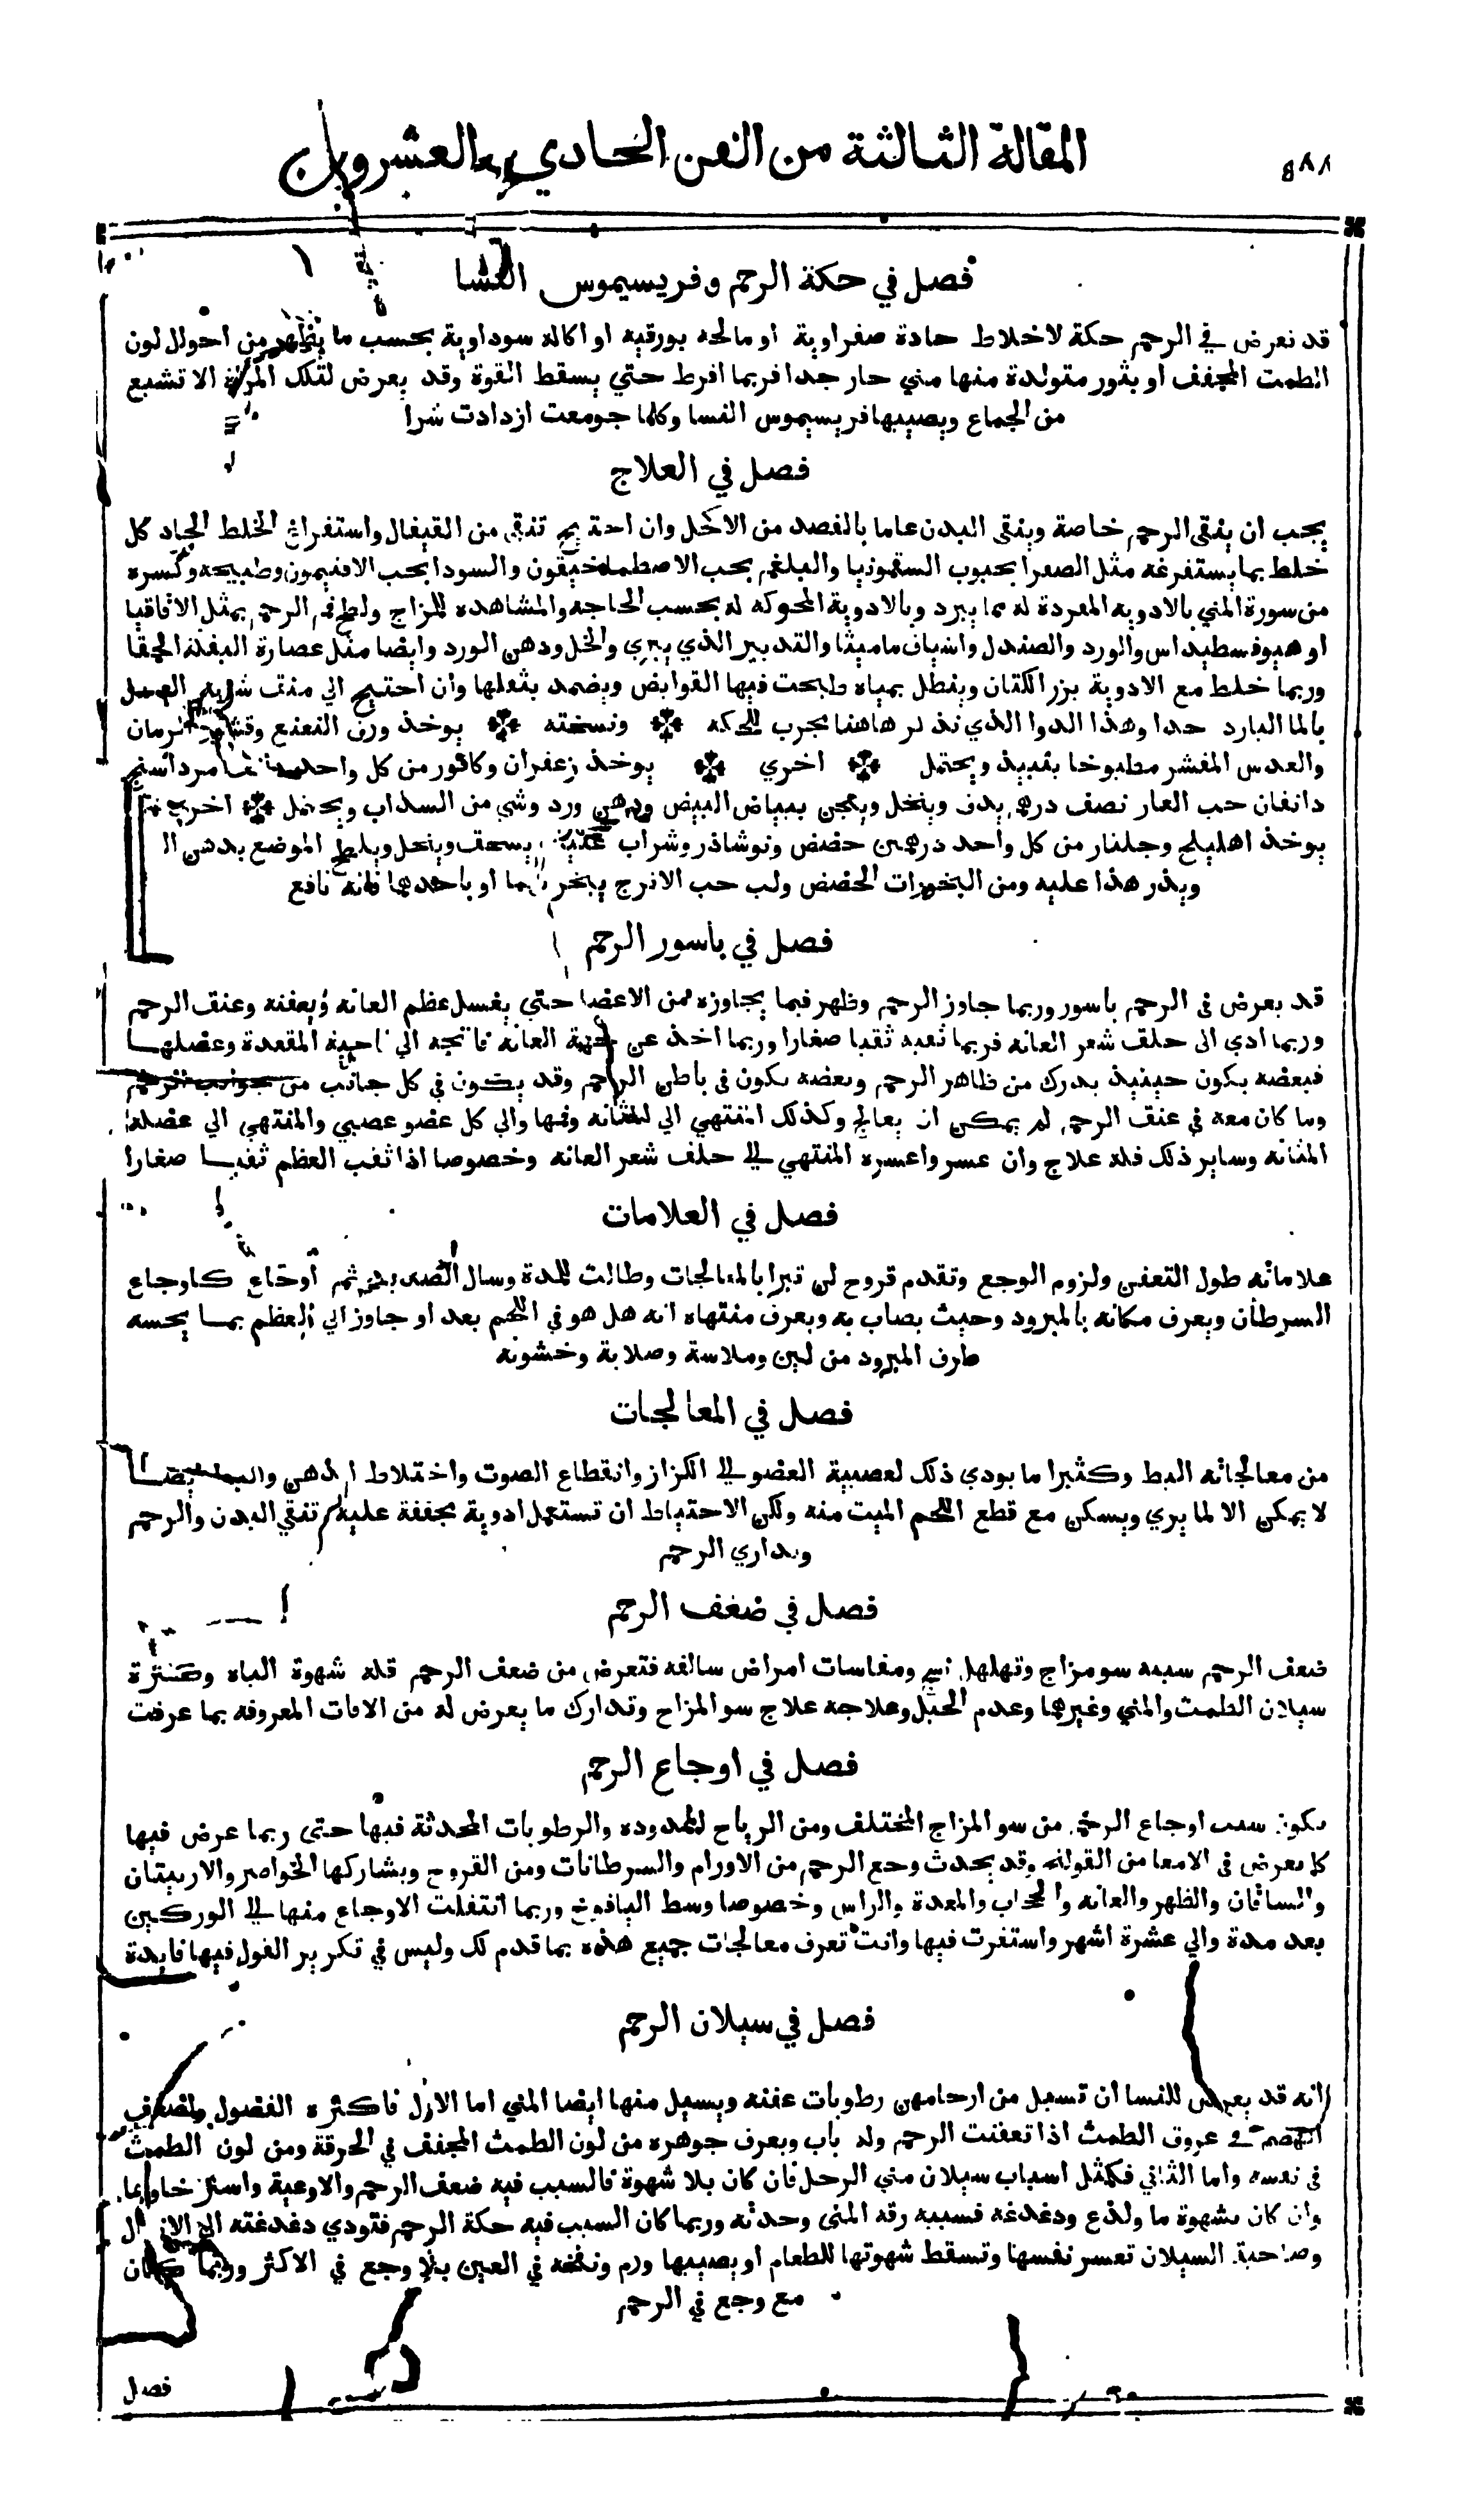 المقالة الثالثة من الفن الحادي والعشرون
فصل في حكة الرحم وفريسيموس النسا
قد تعرض في الرحم حكة لاخلاط حادة صفراوية او مالحه بورقيه او اكالة سوداوية بحسب ما يظهر من احوال لون
الطمث المجفف او بثور متولدة منها مني حار جدا فربما افرط حتي يسقط القوة وقد يعرض لتلك المراة الا تشبع
من الجماع ويصيبها فريسيموس النسا وكلما جومعت ازدادت شرا
فصل في العلاج
يجب ان ينقى الرحم خاصة وينقى البدن عاما بالفصد من الاكحل وان احتيج تنقى من القيفال واستفراغ الخلط الحاد كل
خلط بما يستفرغه مثل الصفرا بحبوب السقمونيا والبلغم بحب الاصطمخيقون والسودا بحب الافتيمون وطبيخه وكسره
من سورة المني بالادويه المفردة له مما يبرد وبالادوية المحركه له بحسب الحاجه والمشاهده للمزاج ولطخ فم الرحم بمثل الاقاقيا
او هيوفسطيداس والورد والصندل واشياف ماميثا والتدبير الذي يبري والخل ودهن الورد وايضا مثل عصارة البقلة الحمقا
وربما خلط مع الادوية بزر الكتان وينطل بمياه طبخت فيها القوابض ويضمد بثفلها وان احتيج الي منقب شربه العسل
بالما البارد جدا وهذا الدوا الذي نذكر هاهنا مجرب للحكه ونسخته يوخذ ورق النعنع وقشر الرمان
والعدس المقشر مطبوخا بنبيذ ويحتمل اخري يوخذ زعفران وكافور من كل واحد مرداسنج
دانقان حب الغار نصف درهم يدق وينخل ويعجن ببياض البيض ودهن ورد وشي من السداب ويحتمل اخري
يوخذ اهليلج وجلنار من كل واحد درهمين حضض ونوشاذر وشراب يسحق وينخل ويلطخ الموضع بدهن
ويذر هذا عليه ومن البخورات الحضض ولب حب الاترج يبخر بهما او باحدهما فانه نافع
فصل في باسور الرحم
قد يعرض في الرحم باسور وربما جاوز الرحم وظهر فيما يجاوزه من الاعضا حتي يفسل عظم العانه ويعفنه وعنق الرحم
وربما ادي الى حلق شعر العانه فربما ثقبه ثقبا صغارا وربما اخذ عن جهة العانه فاتجه الي ناحية المقعدة وعضلها
فبعضه يكون حينيذ يدرك من ظاهر الرحم وبعضه يكون في باطن الرحم وقد يكون في كل جانب من جوانب الرحم
وما كان معه في عنق الرحم لم يمكن ان يعالج وكذلك المنتهي الي المثانه وفمها والي كل عضو عصبي والمنتهي الي عضلة
المثانه وساير ذلك فله علاج وان عسر واعسره المنتهي الي حلف شعر العانه وخصوصا اذا ثقب العظم ثقبا صغارا
فصل في العلامات
علاماته طول التعفن ولزوم الوجع وتقدم قروح لن تبرا بالمعالجات وطالت المدة وسال الصديد ثم اوجاع كاوجاع
السرطان ويعرف مكانه بالمبرود وحيث يصاب به ويعرف منتهاه انه هل هو في اللحم بعد او جاوز الي العظم بما يحسه
طرف المبرود من لين وملاسة وصلابة وخشونه
فصل في المعالجات
من معالجاته البط وكثيرا ما يودي ذلك لعصبية العضو الي الكزاز وانقطاع الصوت واختلاط الذهن ايضا
لا يمكن الا لما يري ويسكن مع قطع اللحم الميت منه ولكن الاحتياط ان تستعمل ادوية مجففة عليه تنقي البدن والرحم
ويداري الرحم
فصل في ضعف الرحم
ضعف الرحم سببه سو مزاج وتهلهل نسج ومقاسات امراض سالفه فتعرض من ضعف الرحم قلة شهوة الباه وكثرة
سيلان الطمث والمني وغيرهما وعدم الحبل وعلاجه علاج سو المزاج وتدارك ما يعرض له من الافات المعروفه بما عرفت
فصل في اوجاع الرحم
يكون سبب اوجاع الرحم من سو المزاج المختلف ومن الرياح الممدوده والرطوبات المحدثة فيها حتي ربما عرض فيها
كما يعرض في الامعا من القولنج وقد يحدث وجع الرحم من الاورام والسرطانات ومن القروح ويشاركها الخواصر والاربيتان
والساقان والظهر والعانه والحجاب والمعدة والراس وخصوصا وسط اليافوخ وربما انتقلت الاوجاع منها الي الوركين
بعد مدة والي عشرة اشهر واستقرت فيها وانت تعرف معالجات جميع هذه بما قدم لك وليس في تكرير القول فيها فايدة
فصل في سيلان الرحم
انه قد يعرض للنسا ان تسيل من ارحامهن رطوبات عفنه ويسيل منها ايضا المني اما الاول فاكثره الفضول ولضعف
الهضم في عروق الطمث اذا تعفنت الرحم وله باب ويعرف جوهره من لون الطمث المجفف في الحرقة ومن لون الطمث
في نفسه واما الثاني فكمثل اسباب سيلان مني الرجل فان كان بلا شهوة فالسبب فيه ضعف الرحم والاوعية واسترخاوها
وان كان بشهوة ما ولذع ودغدغه فسببه رقة المني وحدته وربما كان السبب فيه حكة الرحم فتودي دغدغته الي الانزال
وصاحبة السيلان تعسر نفسها وتسقط شهوتها للطعام او يصيبها ورم ونفخه في العين بلا وجع في الاكثر وربما كان
مع وجع في الرحم
فصل